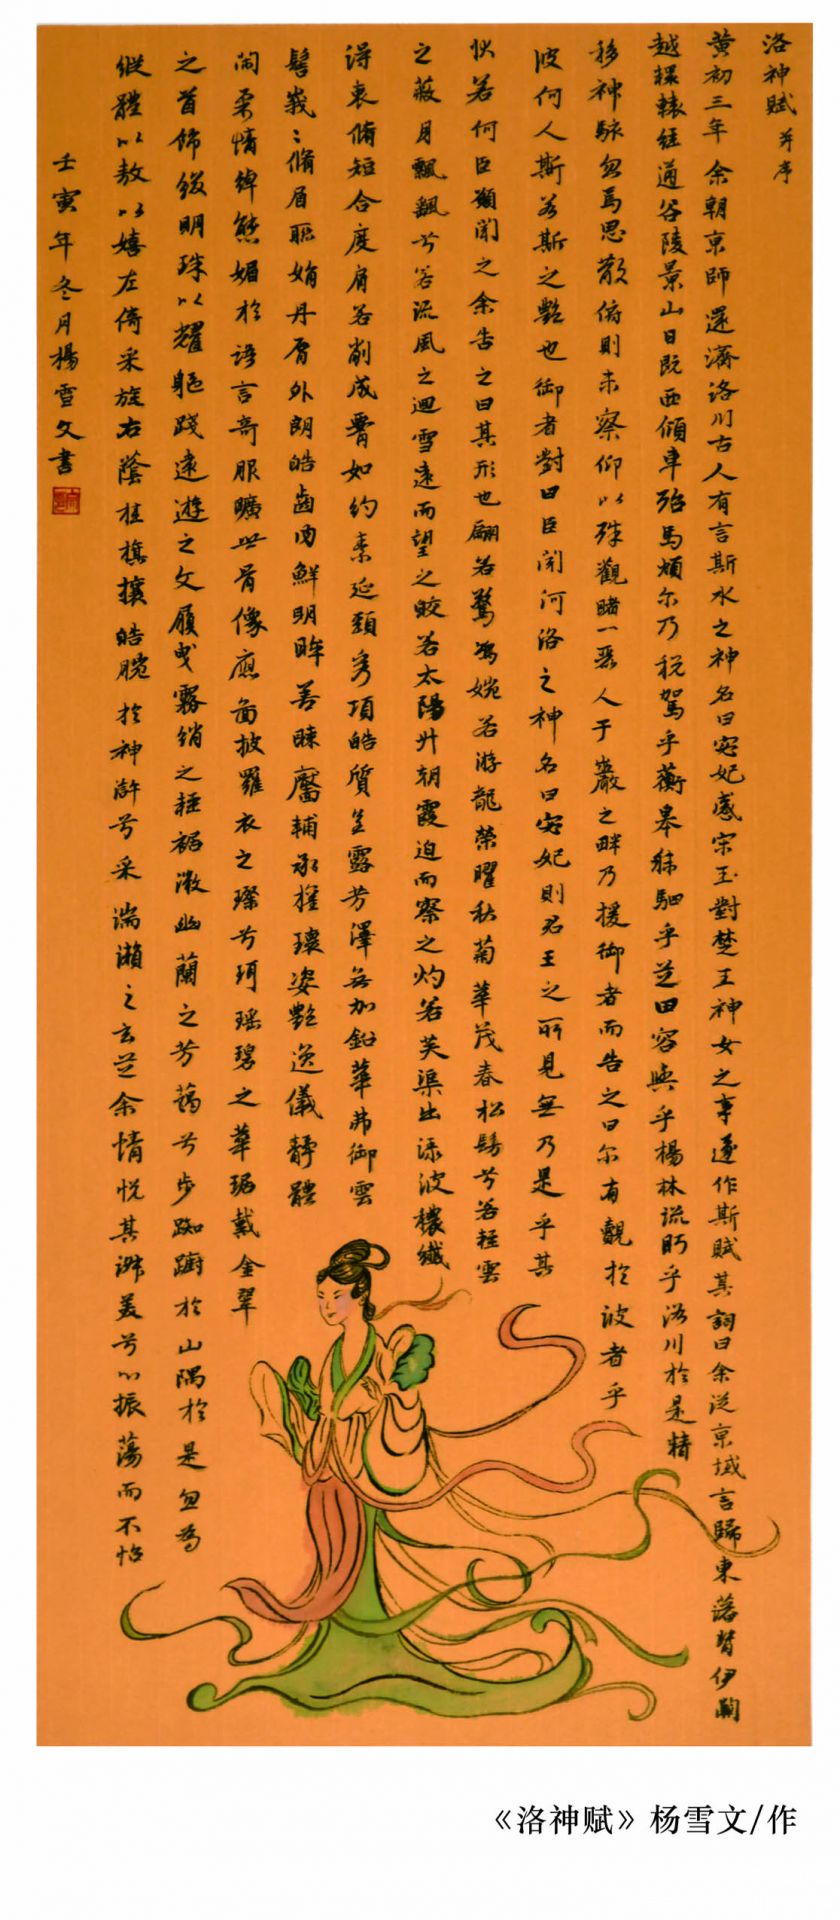 洛神賦 并序
黄初三年余朝京師還濟洛川古人有言斯水之神名曰宓妃感宋玉對楚王神女之事遂作斯賦其詞曰余從京域言歸東藩背伊闕
越轘轅經通谷陵景山日既西傾車殆馬煩尔乃税駕乎蘅皋秣駟乎芝田容與乎楊林流眄乎洛川於是精
移神駭忽焉思散俯則未察仰以殊觀睹一麗人于巖之畔乃援御者而告之曰尔有覿於彼者乎
彼何人斯若斯之艷也御者對曰臣聞河洛之神名曰宓妃則君王之所見無乃是乎其
狀若何臣願聞之余告之曰其形也翩若驚鴻婉若游龍榮曜秋菊華茂春松髣兮若輕雲
之蔽月飄飖兮若流風之迴雪遠而望之皎若太陽升朝霞迫而察之灼若芙渠出渌波穠纖
得衷脩短合度肩若削成如約素延頸秀項皓質呈露芳澤無加鉛華弗御雲
髻峩〻脩眉聯娟丹脣外朗皓齒内鮮明眸善睞靨輔承權瓌姿艷逸儀靜體
閑柔情綽態媚於語言奇服曠世骨像應圖披羅衣之璨兮珥瑶碧之華琚戴金翠
之首飾綴明珠以耀軀踐遠遊之文履曳霧綃之輕裾微幽蘭之芳藹兮步踟躕於山隅於是忽焉
縱體以敖以嬉左倚采旄右蔭桂旗攘皓腕於神滸兮采湍瀨之玄芝余情悦其淑美兮心振蕩而不怡
壬寅年冬月楊雪文書
《洛神赋》杨雪文/作